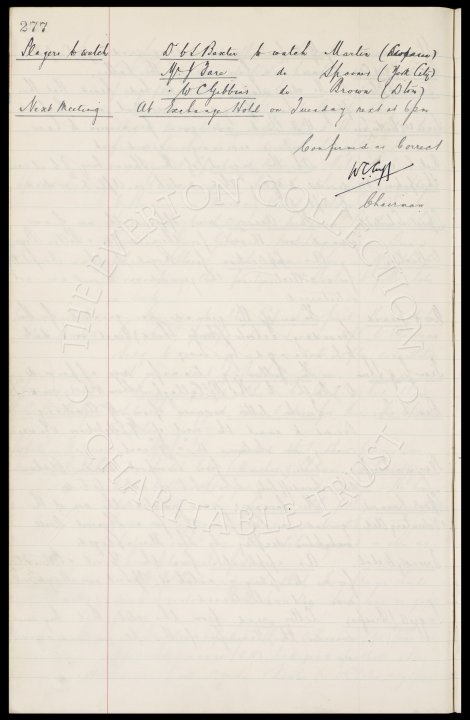 277
Players to watch Dr C S Baxter to watch Martin
Mr J Fare do Spooner (York City)
" W C Gibbins do Brown (Do)
Next Meeting At Exchange Hotel on Tuesday next at 6pm
Confirmed as Correct
W C Cuff
Chairman
THE EVERTON COLLECTION
CHARITABLE TRUST